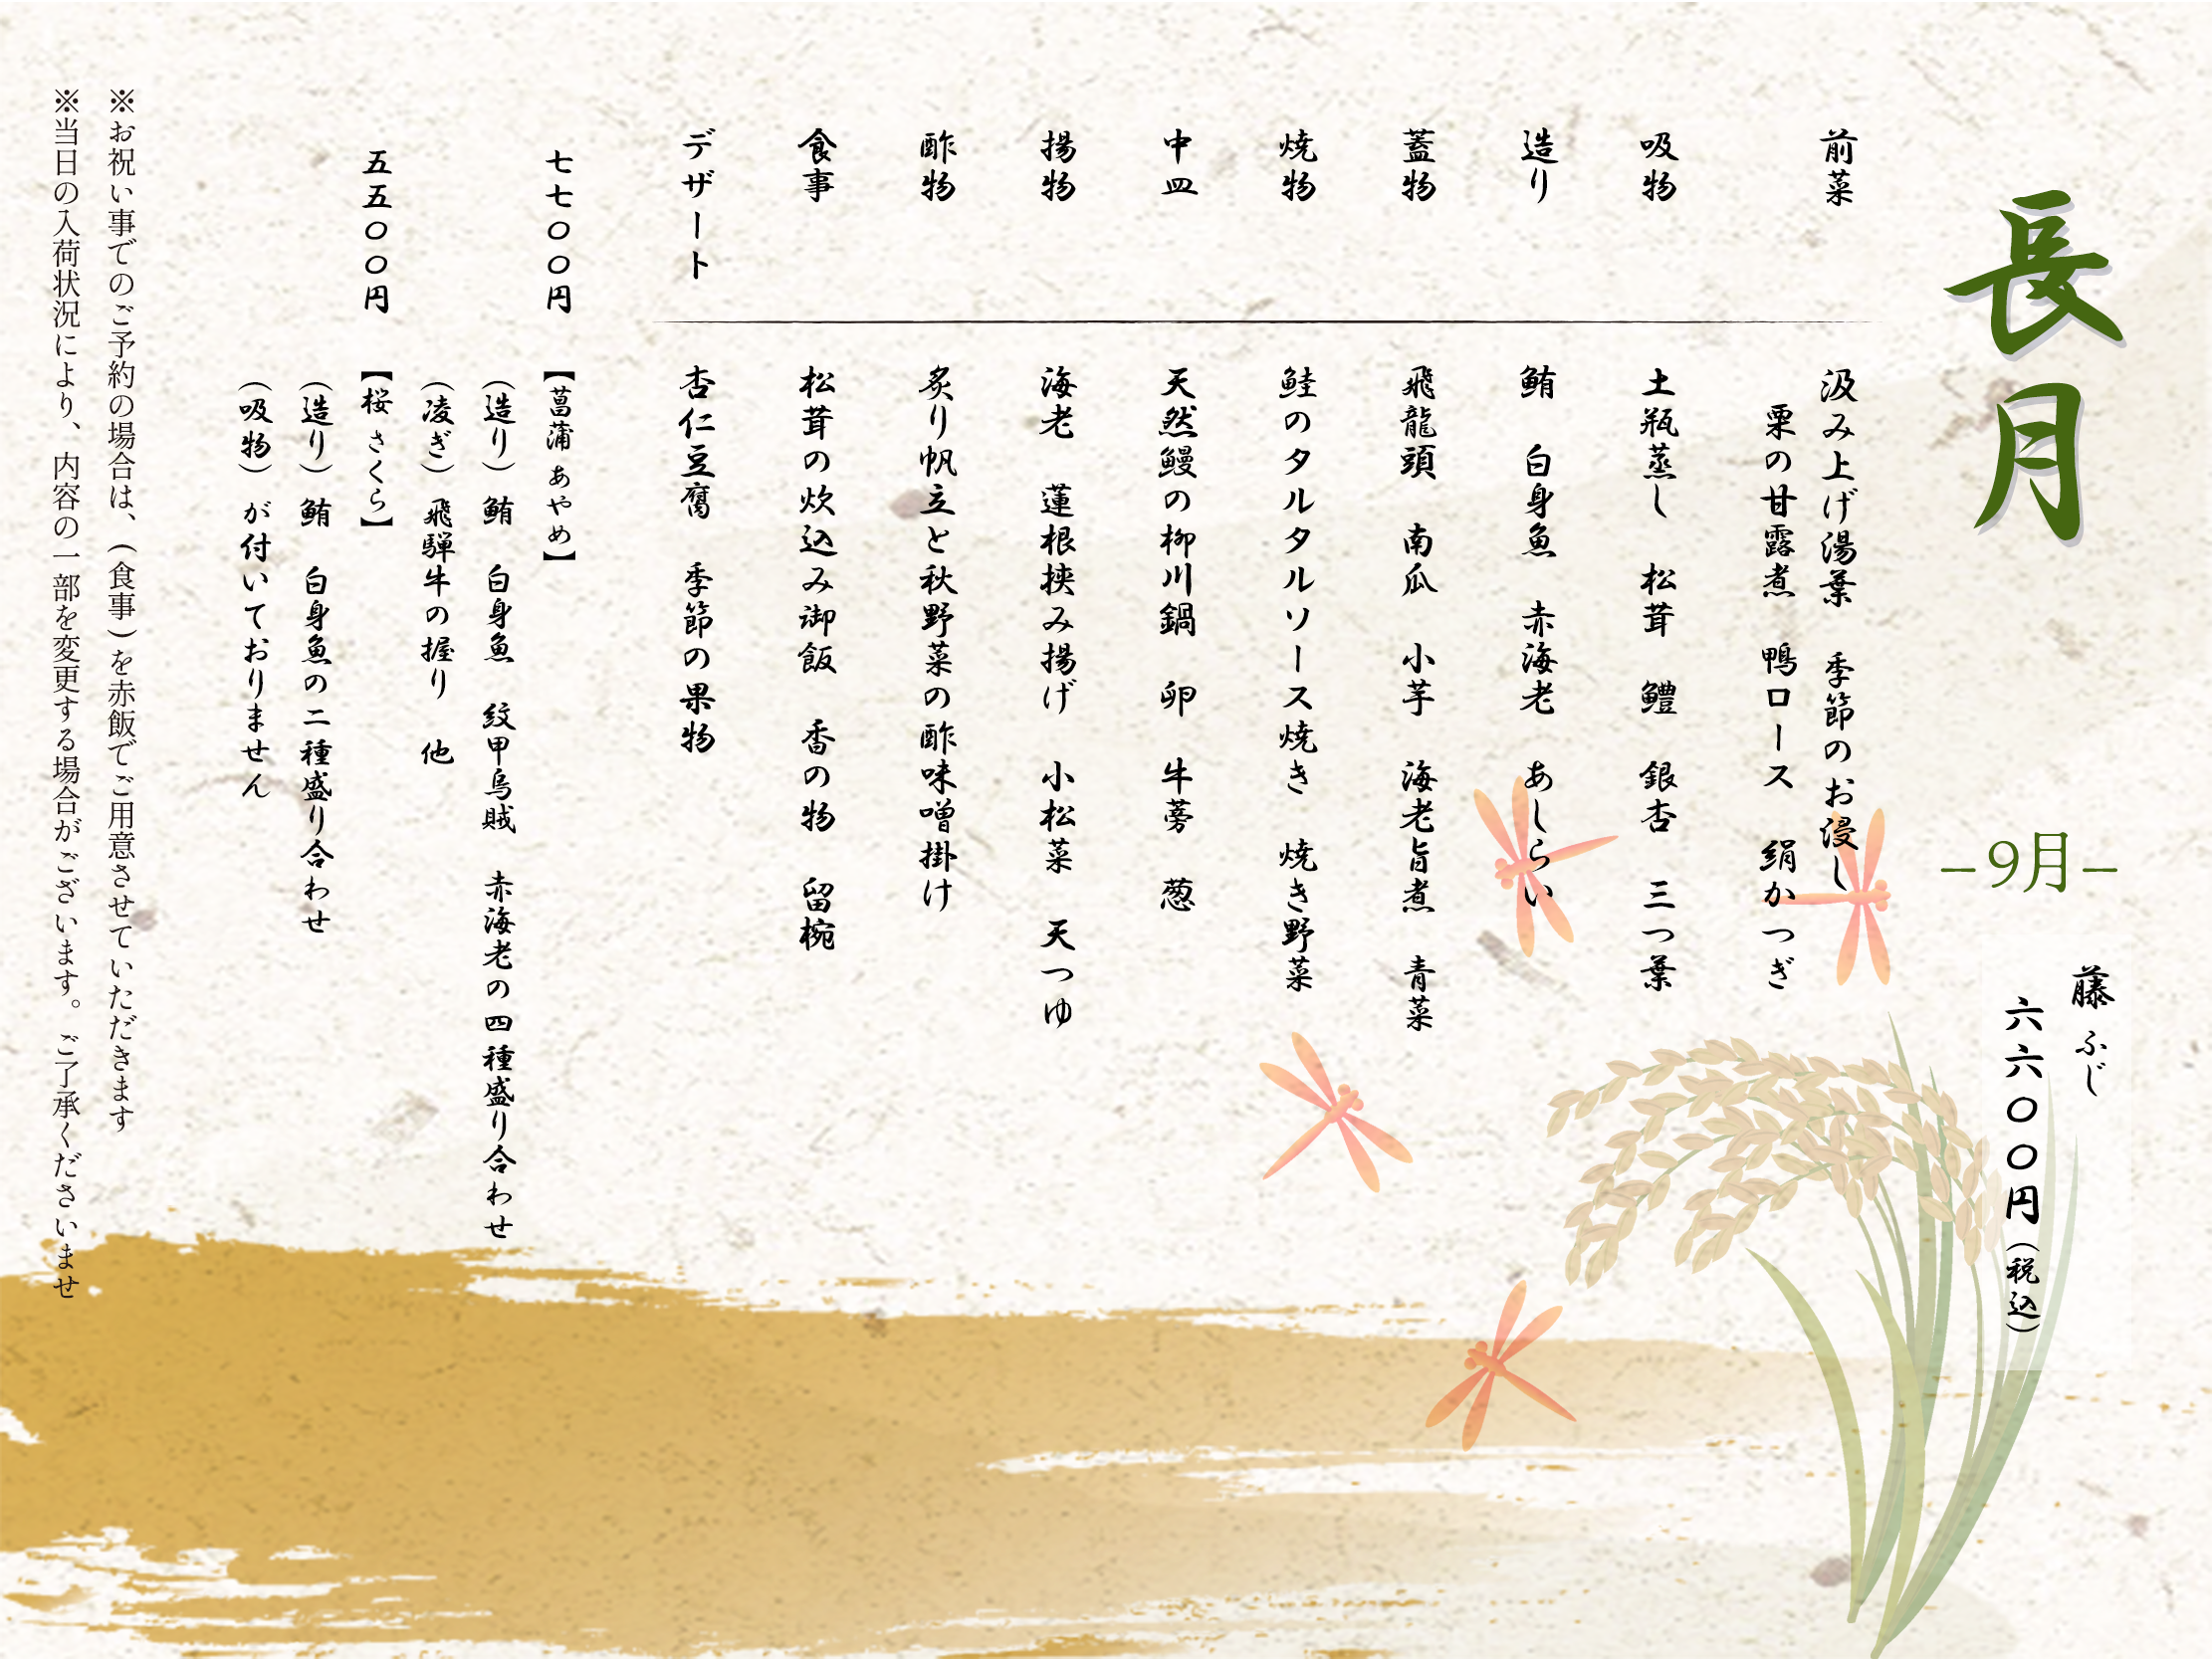 長月
－9月－
藤 ふじ
六六〇〇円(税込)
前菜　汲み上げ湯葉　季節のお浸し
栗の甘露煮　鴨ロース　絹かつぎ
吸物　土瓶蒸し　松茸　鱧　銀杏　三つ葉
造り　鮪　白身魚　赤海老　あしらい
蓋物　飛龍頭　南瓜　小芋　海老旨煮　青菜
焼物　鮭のタルタルソース焼き　焼き野菜
中皿　天然鰻の柳川鍋　卵　牛蒡　葱
揚物　海老　蓮根挟み揚げ　小松菜　天つゆ
酢物　炙り帆立と秋野菜の酢味噌掛け
食事　松茸の炊込み御飯　香の物　留椀
デザート　杏仁豆腐　季節の果物
七七〇〇円　【菖蒲 あやめ】
(造り) 鮪　白身魚　紋甲烏賊　赤海老の四種盛り合わせ
(凌ぎ) 飛騨牛の握り　他
五五〇〇円　【桜 さくら】
(造り) 鮪　白身魚の二種盛り合わせ
(吸物) が付いておりません
※お祝い事でのご予約の場合は、(食事)を赤飯でご用意させていただきます
※当日の入荷状況により、内容の一部を変更する場合がございます。ご了承くださいませ